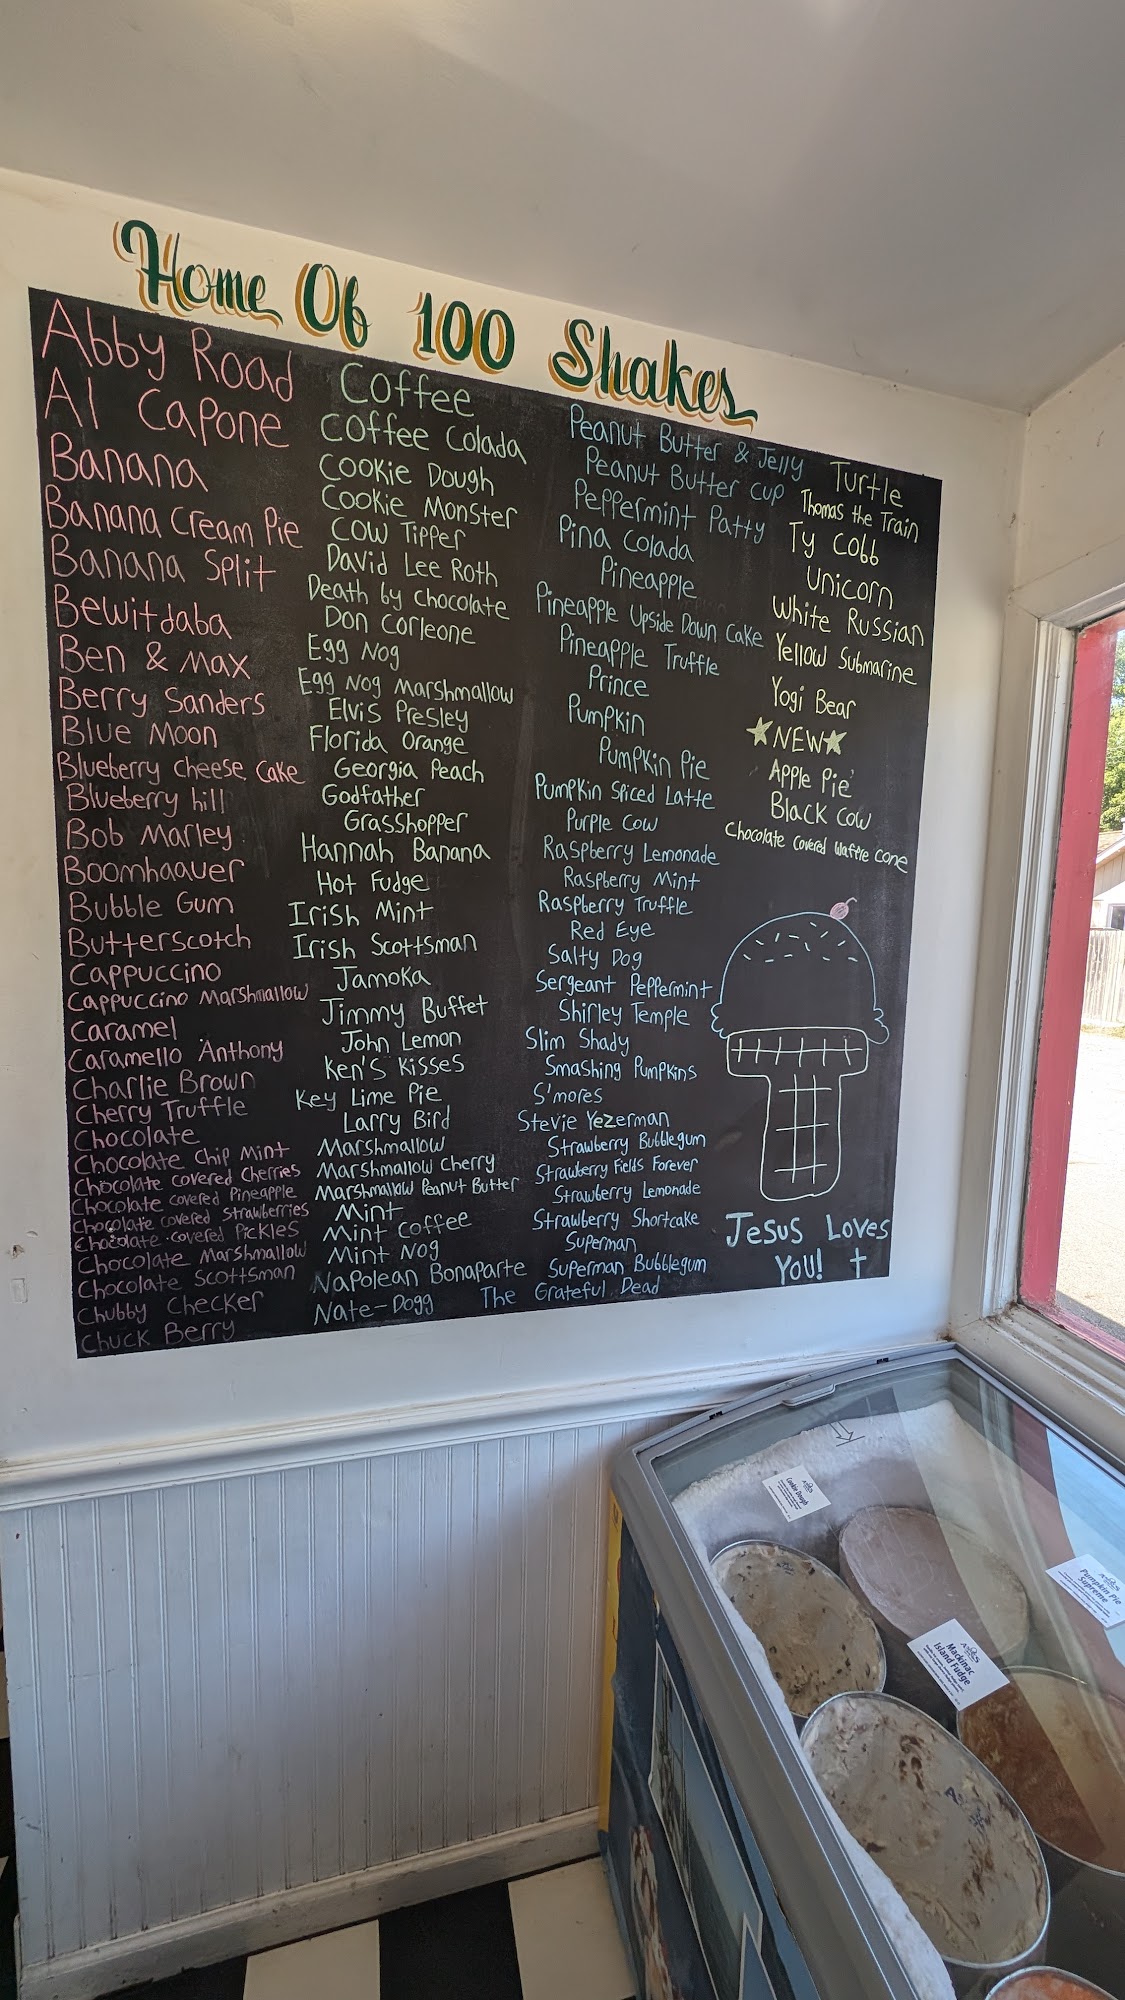 Home Of 100 Shakes
Abby Road
Al Capone
Banana
Banana Cream Pie
Banana Split
Bewitdaba
Ben & Max
Berry Sanders
Blue Moon
Blueberry Cheese Cake
Blueberry hill
Bob Marley
Boomhaauer
Bubble Gum
Butterscotch
Cappuccino
Cappuccino Marshmallow
Caramel
Caramello Anthony
Charlie Brown
Cherry Truffle
Chocolate
Chocolate Chip Mint
Chocolate covered Cherries
Chocolate covered Pineapple
Chocolate covered Strawberries
Chocolate covered Pickles
Chocolate Marshmallow
Chocolate Scottsman
Chubby Checker
Chuck Berry
Coffee
Coffee Colada
Cookie Dough
Cookie Monster
Cow Tipper
David Lee Roth
Death by Chocolate
Don Corleone
Egg Nog
Egg Nog Marshmallow
Elvis Presley
Florida Orange
Georgia Peach
Godfather
Grasshopper
Hannah Banana
Hot Fudge
Irish Mint
Irish Scottsman
Jamoka
Jimmy Buffet
John Lemon
Ken's Kisses
Key Lime Pie
Larry Bird
Marshmallow
Marshmallow Cherry
Marshmallow Peanut Butter
Mint
Mint Coffee
Mint Nog
Napolean Bonaparte
Nate-Dogg
Peanut Butter & Jelly
Peanut Butter cup
Peppermint Patty
Pina Colada
Pineapple
Pineapple Upside Down Cake
Pineapple Truffle
Prince
Pumpkin
Pumpkin Pie
Pumpkin Spiced Latte
Purple Cow
Raspberry Lemonade
Raspberry Mint
Raspberry Truffle
Red Eye
Salty Dog
Sergeant Peppermint
Shirley Temple
Slim Shady
Smashing Pumpkins
S'mores
Stevie Yezerman
Strawberry Bubblegum
Strawberry Fields Forever
Strawberry Lemonade
Strawberry Shortcake
Superman
Superman Bubblegum
The Grateful Dead
Turtle
Thomas the Train
Ty Cobb
Unicorn
White Russian
Yellow Submarine
Yogi Bear
★NEW★
Apple Pie
Black Cow
Chocolate covered Waffle Cone
Jesus Loves
You! †
Cookie Dough
Pumpkin Pie
Supreme
Mackinac
Island Fudge